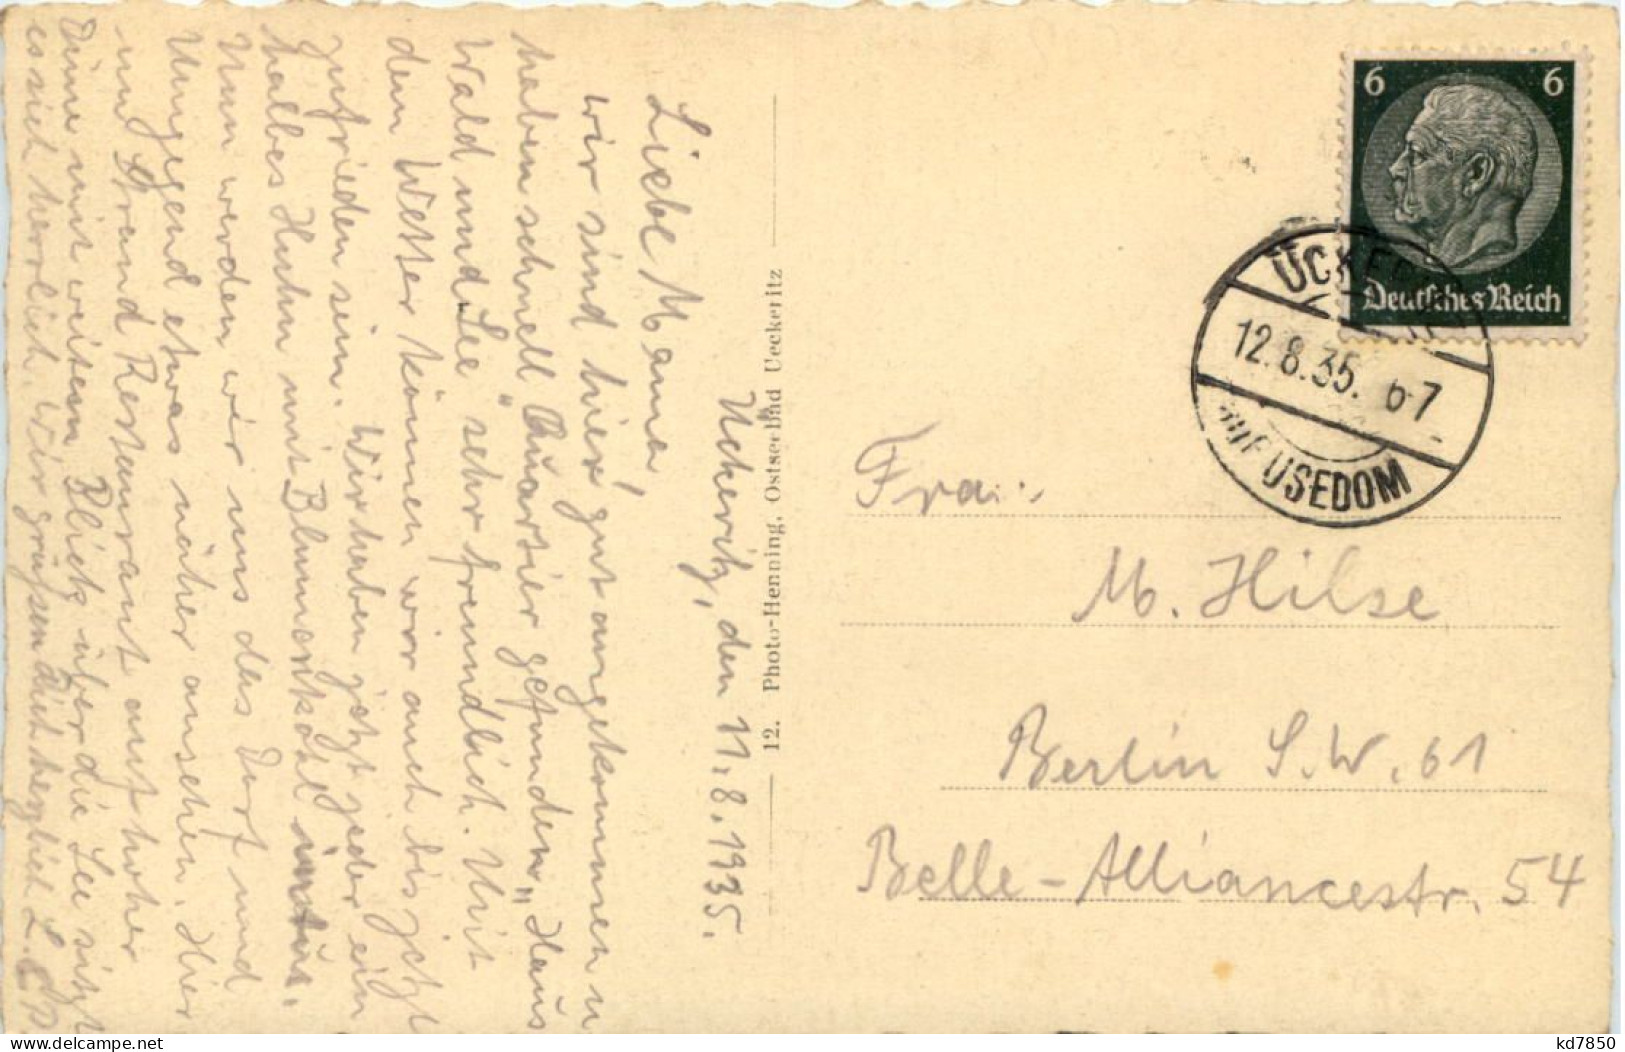 Ückeritz, den 11.8.1935.
Liebe Mama,
wir sind hier gut angekommen u
haben schnell Quartier gefunden. „Haus
Wald und See“ sehr freundlich. Mit
dem Wetter können wir auch bis jetzt
zufrieden sein. Wir haben jetzt jeder ein
halbes Huhn mit Blumenkohl intus.
Nun werden wir uns das Dorf und
Umgegend etwas näher ansehen. Hier
im Strand Restaurant auf hoher
Düne mit weitem Blick über die See sitzt
es sich herrlich. Wir grüßen Dich herzlich L.
12. Photo-Henning, Ostseebad Ueckeritz
6 6
Deutsches Reich
12.8.35. 6-7
auf USEDOM
Frau
M. Hilse
Berlin S.W. 61
Belle-Alliancestr. 54
delcampe.net
kd7850